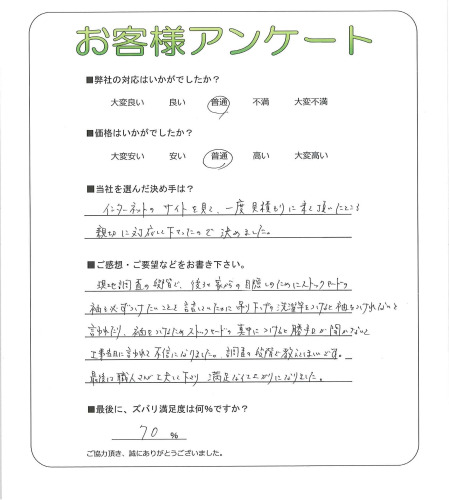 お客様アンケート
■弊社の対応はいかがでしたか?
大変良い 良い 普通 不満 大変不満
■価格はいかがでしたか?
大変安い 安い 普通 高い 大変高い
■当社を選んだ決め手は?
インターネットの サイトを見て、一度見積もりに来て頂いたところ
親切に対応して下さったので決めました。
■ご感想・ご要望などをお書き下さい。
現地調査の段階で、後ろの家からの目隠しのためにストックヤードの
袖を必ずつけたいことを話していたのに吊り下げの洗濯竿をつけると袖をつけれないと
言われたり、袖をつけるためストックヤードの真中につけると勝手口が開かないと
工事当日に言われて不信になりました。調査の段階で教えてほしいです。
最後は職人さんが工夫して下さり 満足な仕上がりになりました。
■最後に、ズバリ満足度は何%ですか?
70 %
ご協力頂き、誠にありがとうございました。